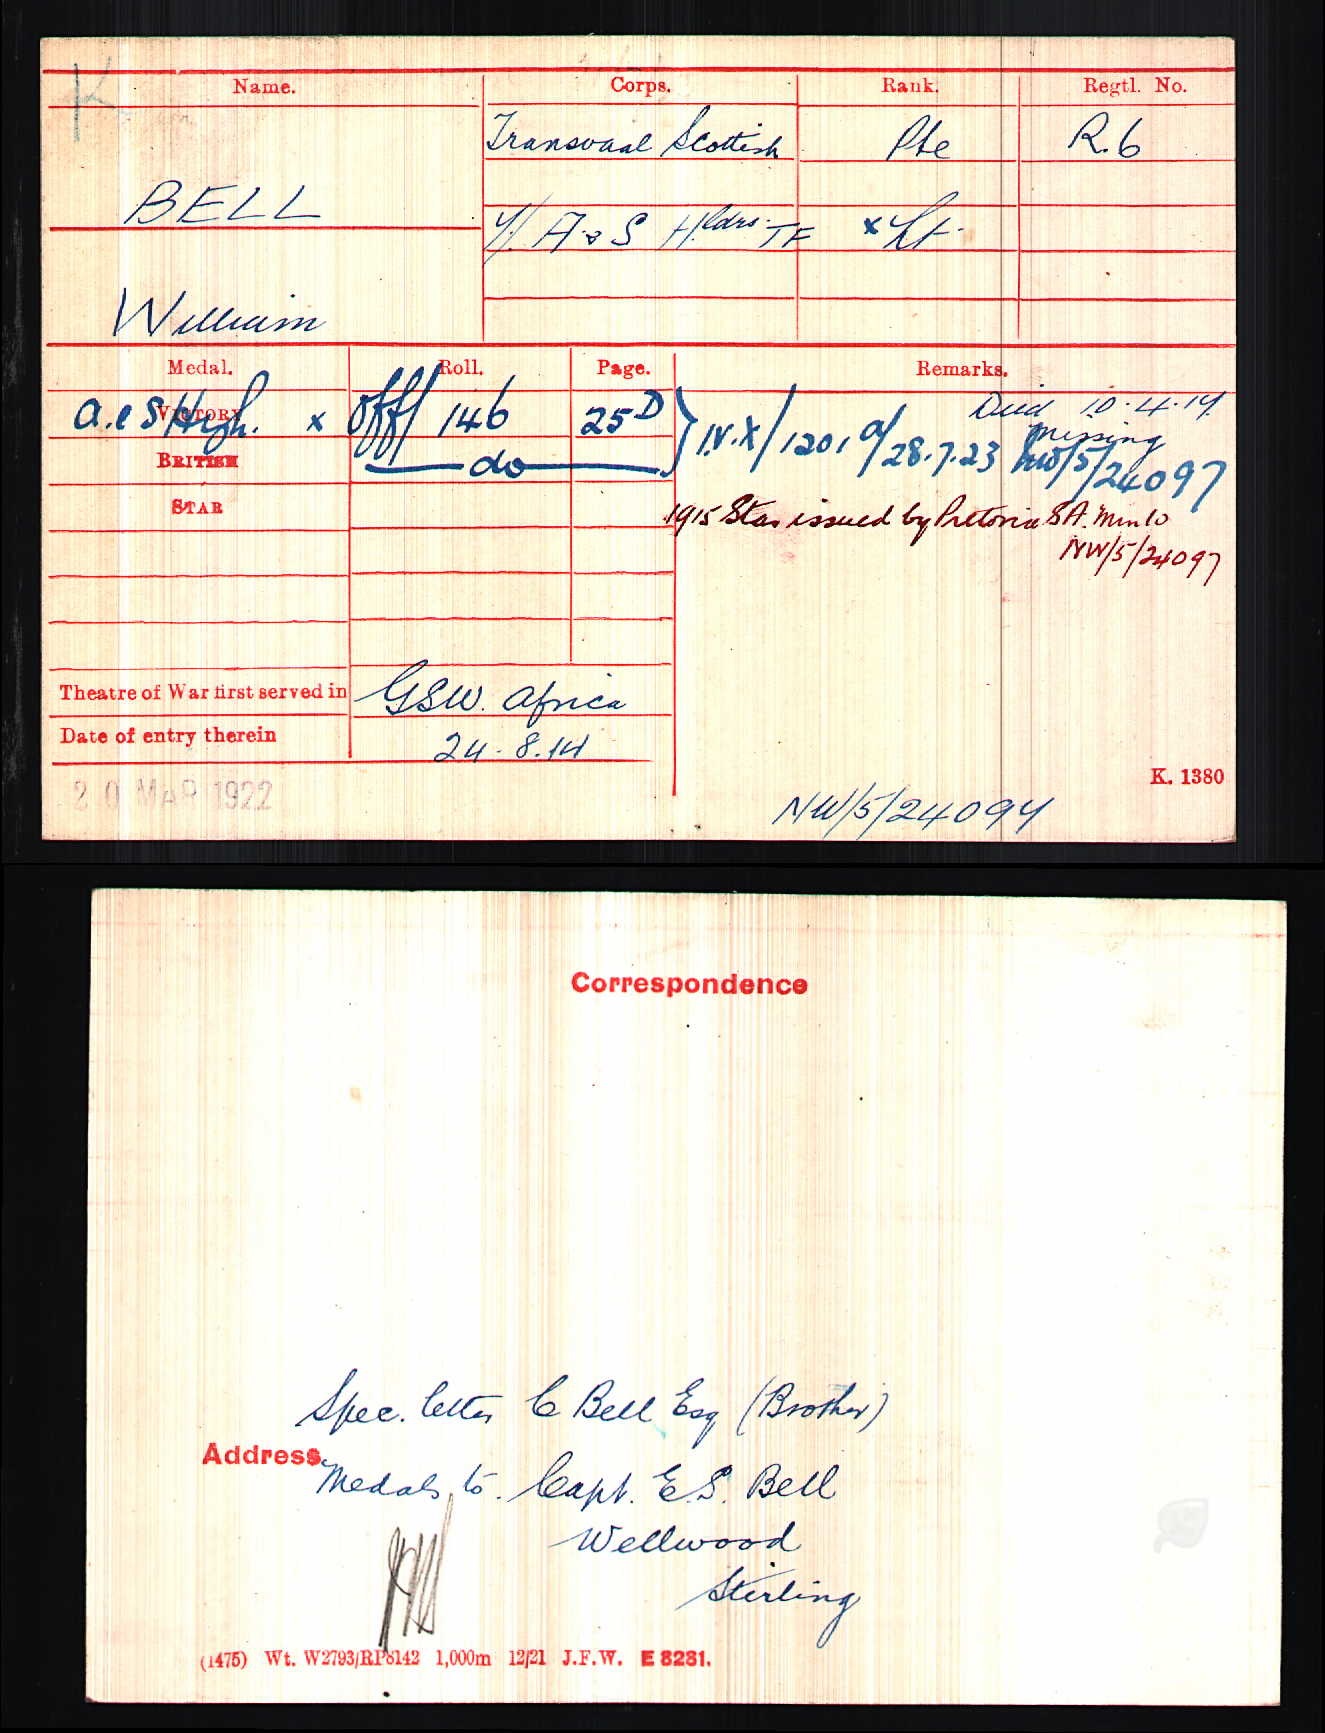 Name. Corps. Rank. Regtl. No.
Transvaal Scottish Pte R.6
BELL
7/ A & S Hldrs. TF x Lt.
William
Medal. Roll. Page. Remarks.
VICTORY a. e S High. x Off/ 146 25D } IV.X/1201 a/28.7.23 Died 10.4.17.
Missing
BRITISH do NW/5/24097
STAR 1915 Star issued by Pretoria SA. Min 10
NW/5/24097
Theatre of War first served in GSW. Africa
Date of entry therein 24-8.14
K. 1380
20 MAR 1922
NW/5/24094
Correspondence
Spec. letter C Bell Esq (Brother)
Address.
Medals to. Capt. E.S. Bell
Wellwood
Stirling
(1475) Wt. W2793/RP8142 1,000m 12/21 J.F.W. E 8281.